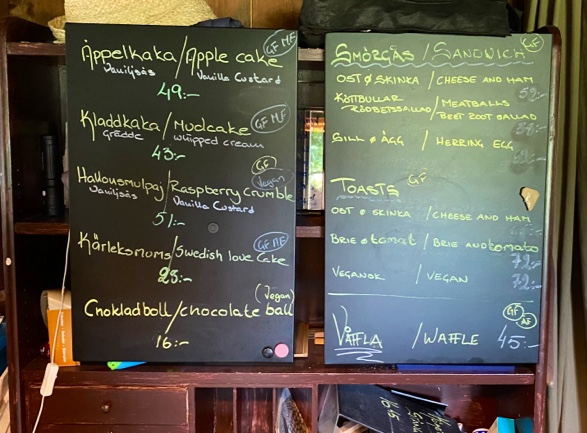 Äppelkaka / Apple cake GF MF
Vaniljsås Vanilla Custard
49:-
Kladdkaka / Mudcake GF MF
Grädde whipped cream
43:-
GF
Vegan
Hallonsmulpaj / Raspberry crumble
Vaniljsås Vanilla Custard
51:-
Kärleksmums / Swedish love cake GF
(Vegan)
Chokladboll / chocolate ball
16:-
SMÖRGÅS / SANDWICH GF
OST & SKINKA / CHEESE AND HAM
KÖTTBULLAR / MEATBALLS
RÖDBETSSALLAD BEET ROOT SALLAD
SILL & ÄGG / HERRING EGG
TOASTS GF
OST & SKINKA / CHEESE AND HAM
BRIE & tomat / BRIE AND tomato
72:-
VEGANSK / VEGAN
72:-
GF
VÅFFLA / WAFFLE 45:-